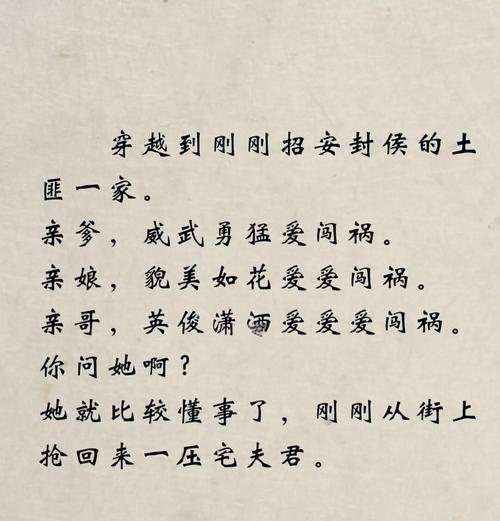 穿越到刚刚招安封侯的土
匪一家。
亲爹，威武勇猛爱闯祸。
亲娘，貌美如花爱爱闯祸。
亲哥，英俊潇洒爱爱爱闯祸。
你问她啊？
她就比较懂事了，刚刚从街上
抢回来一压宅夫君。